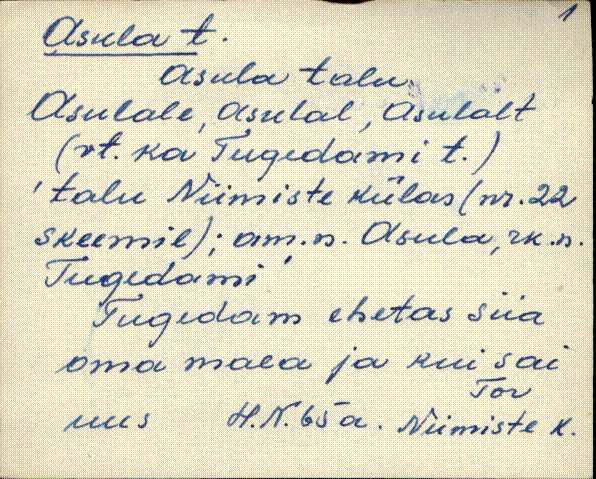 1
Asula t.
Asula talu,
Asulale, Asulal, Asulalt
(vt. ka Tugedami t.)
'talu Niimiste külas (nr. 22
skeemil); am. n. Asula, rk. n.
Tugedami'
Tugedam ehetas siia
oma maea ja kui sai
Tor
uus H.N. 65 a. Niimiste k.